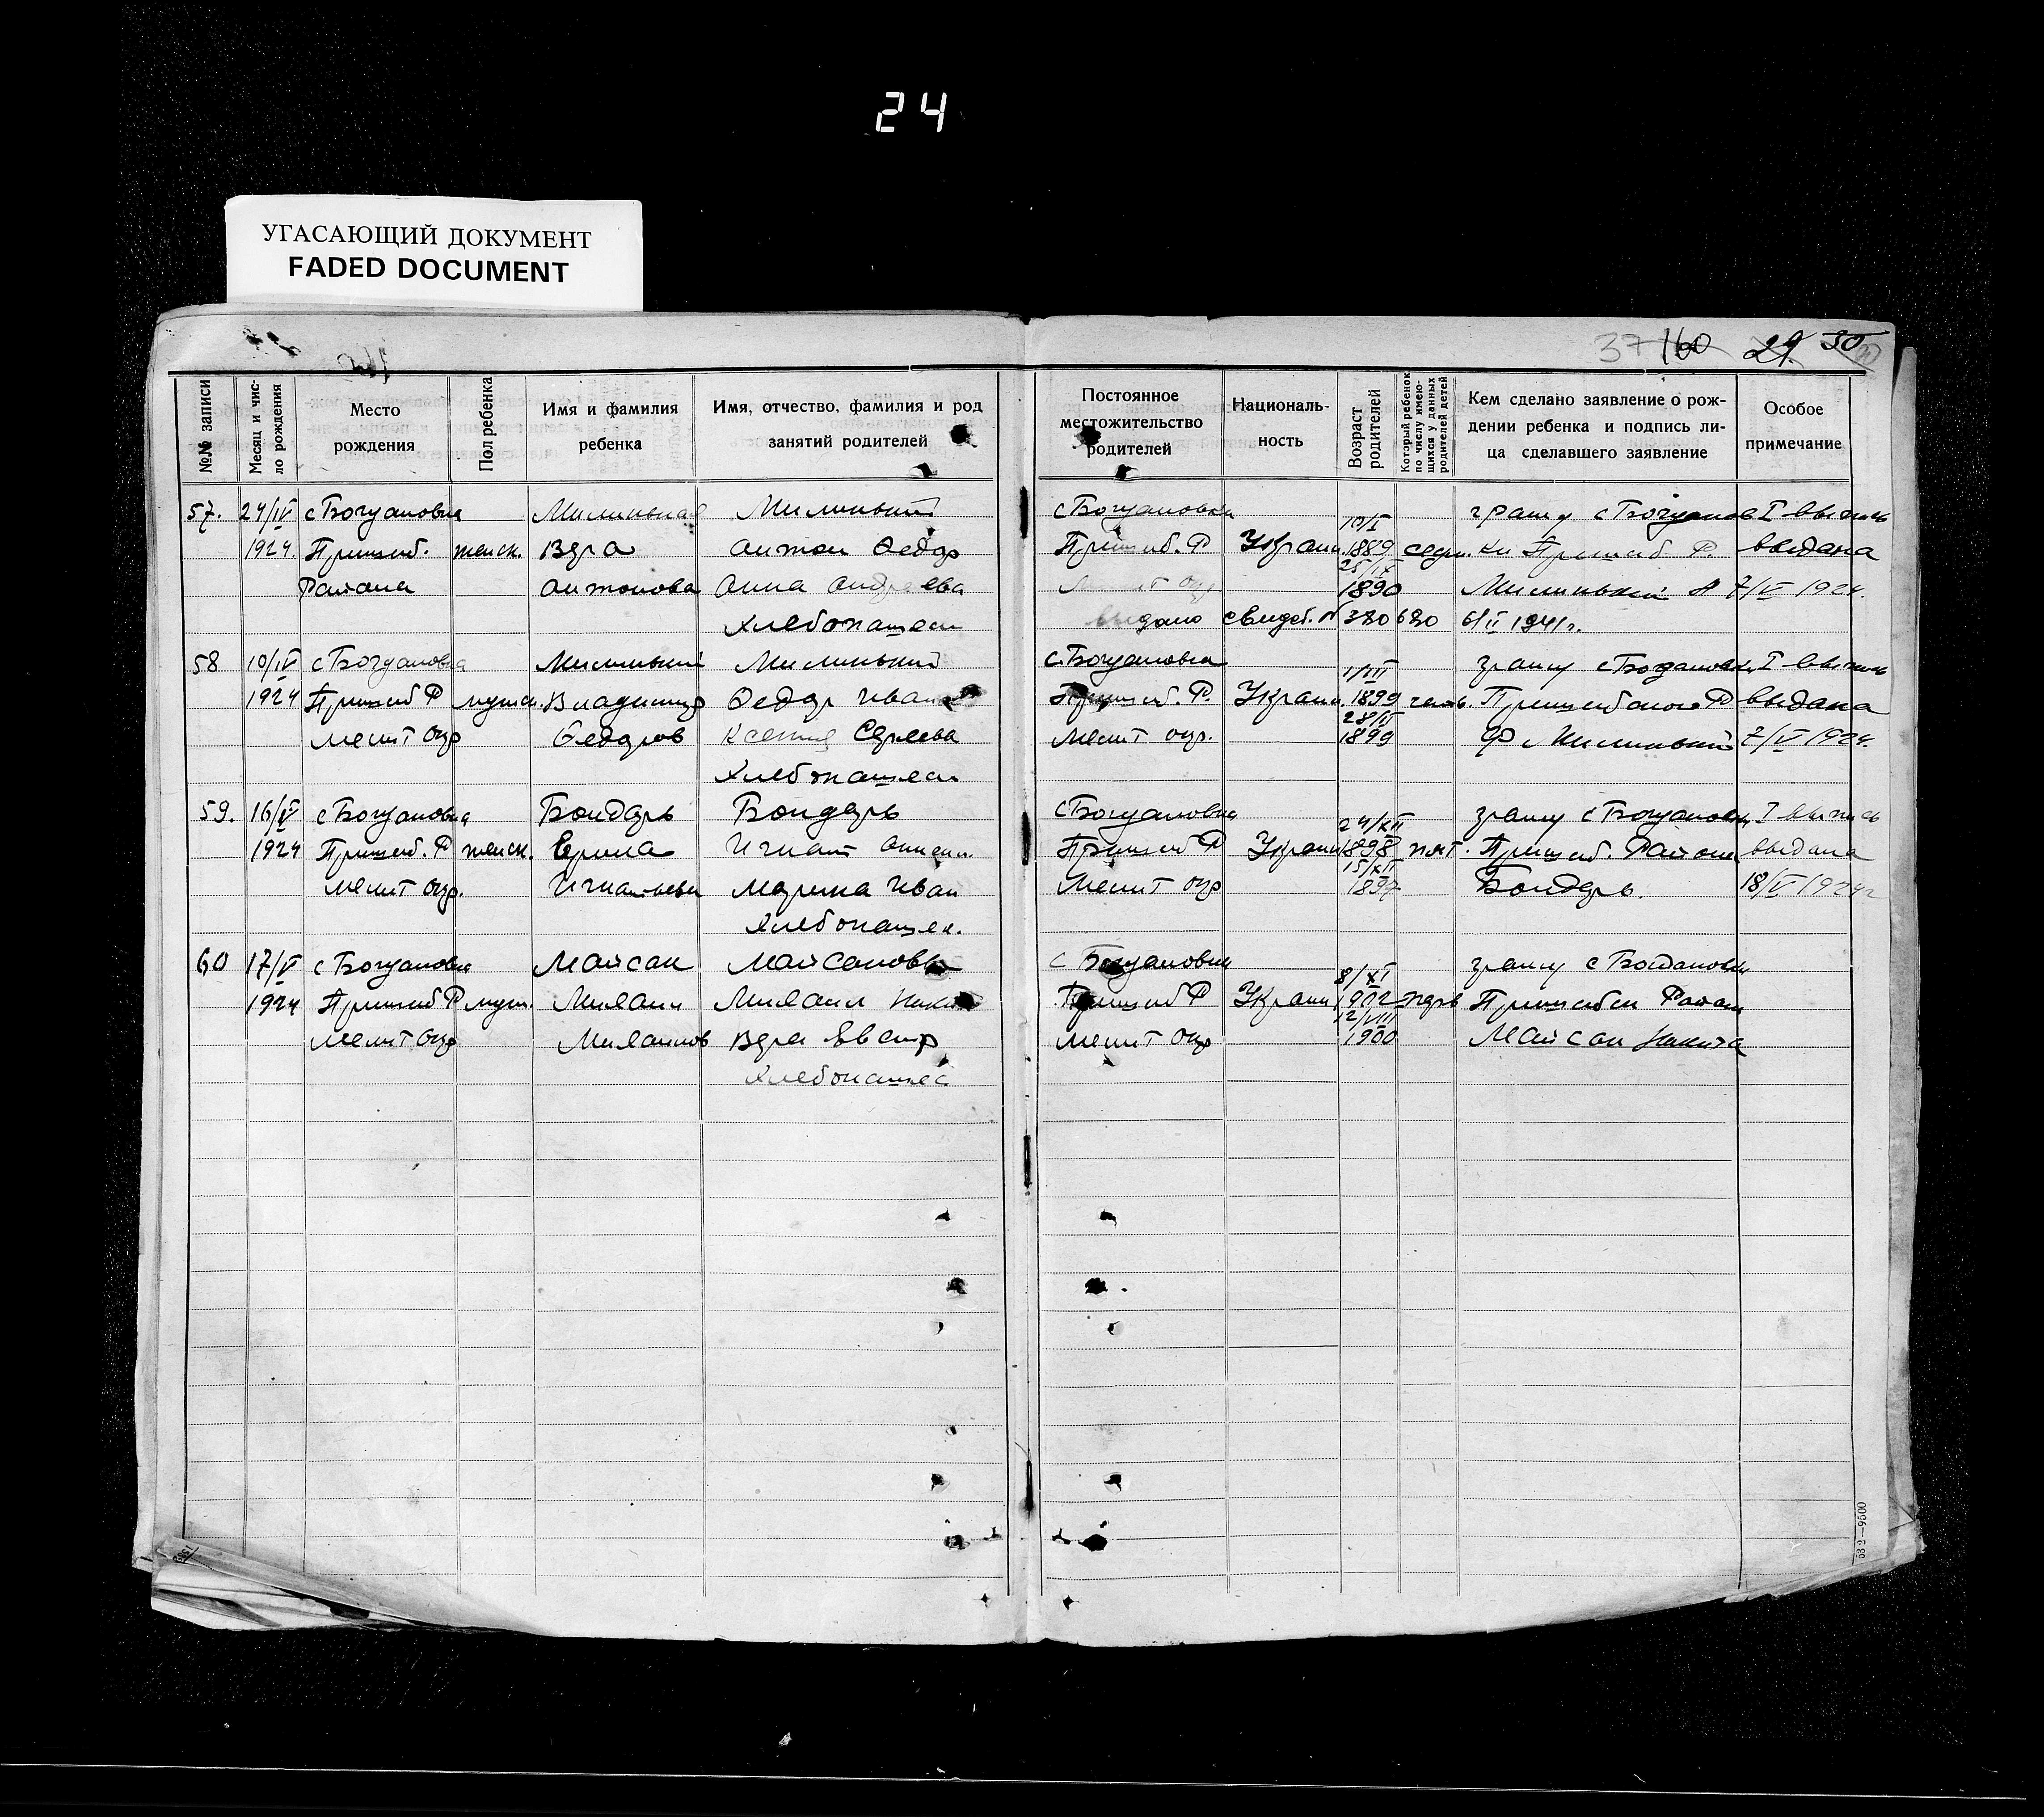 24
УГАСАЮЩИЙ ДОКУМЕНТ
FADED DOCUMENT
37 160 29 30
№№ записи
Месяц и число рождения
Место рождения
Пол ребенка
Имя и фамилия ребенка
Имя, отчество, фамилия и род занятий родителей
Постоянное местожительство родителей
Националь-ность
Возраст родителей
Который ребенок по числу имеющихся у данных родителей детей
Кем сделано заявление о рождении ребенка и подпись лица сделавшего заявление
Особое примечание
57. 24/IV с Богдановка Милинькая Милинький с Богдановка 10/I гражд с БогдановI выпись
1924. Пришиб. женск. Вера Антон Федор Пришиб. Р Украин. 1889 седм. ки Пришиб Р. выдана
Района Антонова Анна Андреева 25/IV 1890 Милинький А 7/V 1924.
Хлебопашец выдано свидет. N 380680 6/II 1941г.
58 10/IV с Богдановка Милинький Милинький с Богдановка 1/III гражд с Богдановк I выпись
1924 Пришиб Р мужск. Владимир Федор Иван Пришиб. Р. Украин. 1899 четв. Пришибского Р выдана
Мелит окр Федоров Ксения Сергеева Мелит окр. 28/II 1899 Ф Милинький 7/V 1924.
Хлебопашец
59. 16/V с Богдановка Бондарь Бондарь с Богдановка 24/XII гражд с Богдановк I выпись
1924 Пришиб. Р женск. Ерина Игнат Пришиб Р Украин 1898 пят. Пришиб. Района выдана
Мелит окр. Игнатьева Марина Иван Мелит окр 15/XII 1897 Бондарь. 18/V 1924г
Хлебопашец.
60 17/V с Богдановка Майсак с Богдановка 8/XI гражд с Богдановк
1924 Пришиб Р муж. Михаил Михаил Никит Пришиб Р Украин 1902 перв Пришибск Район
Мелит окр Михаилов Вера Евстр Мелит окр 12/VIII 1900 Майсак Никита
Хлебопашес